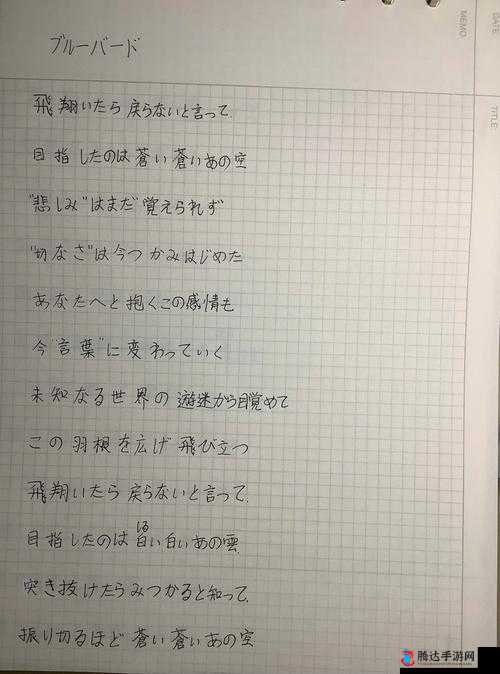 DATE
MEMO
TITLE
ブルーバード
飛翔いたら戻らないと言って、
目指したのは 蒼い 蒼い あの空
"悲しみ"はまだ 覚えられず
"切なさ"は今つかみはじめた
あなたへと抱くこの感情も
今"言葉"に変わっていく
未知なる世界の 遊迷から目覚めて
この羽根を広げ 飛び立つ
飛翔いたら 戻らないと言って、
しろ
目指したのは 白い 白い あの雲
突き抜けたらみつかると知って、
振り切るほど 蒼い 蒼い あの空
腾达手游网